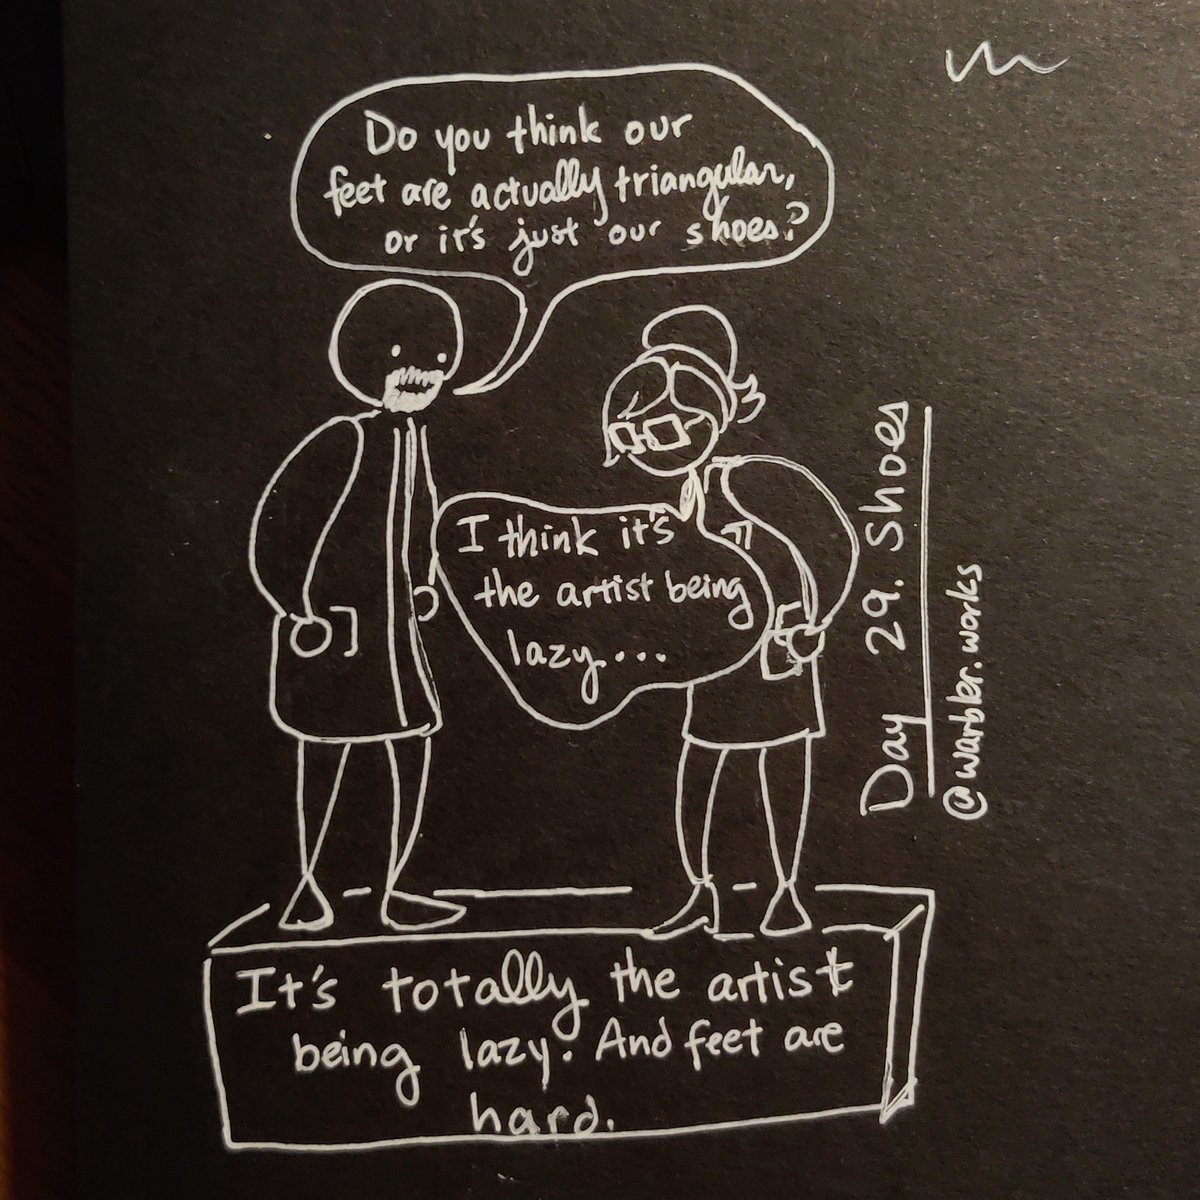 Do you think our
feet are actually triangular,
or it's just our shoes?
I think it's
the artist being
lazy....
It's totally the artist
being lazy. And feet are
hard.
Day 29. Shoes
@warbler.works